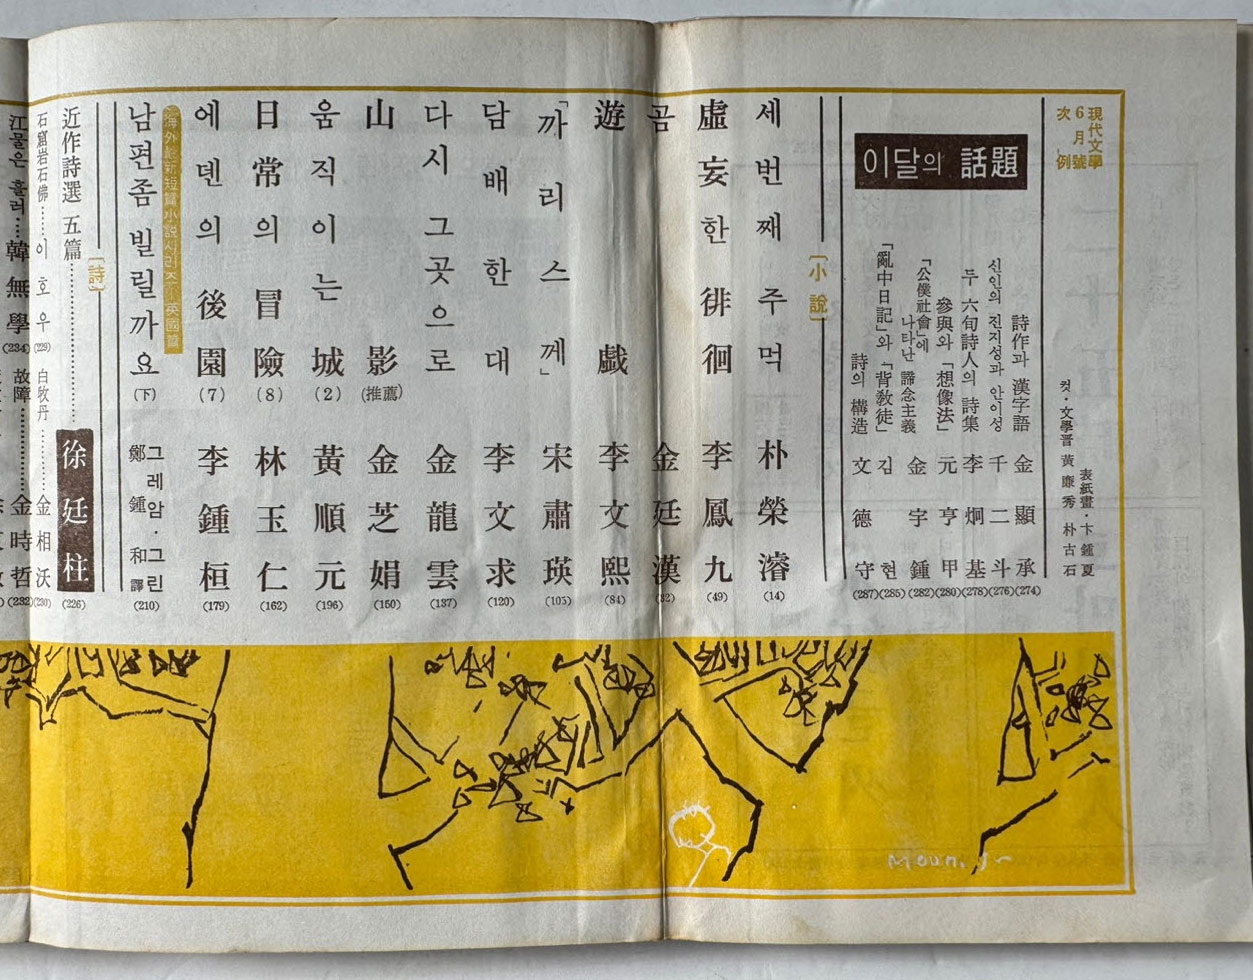 現代文學
6月號
次例
表紙畫·卞鍾夏
컷·文學晋 黃廉秀 朴古石
이달의 話題
詩作과 漢字語 金顯承 (274)
신인의 진지성과 안이성 千二斗 (276)
두 六旬詩人의 詩集 李炯基 (278)
參與와 「想像法」 元亨甲 (280)
「公僕社會」에
나타난 諦念主義 金宇鍾 (282)
「亂中日記」와 「背敎徒」 김현 (285)
詩의 構造 文德守 (287)
[小說]
세번째주먹 朴榮濬 (14)
虛妄한 徘徊 李鳳九 (49)
곰 金廷漢 (32)
遊戱 李文熙 (84)
「까리스께」 宋肅瑛 (105)
담배한대 李文求 (120)
다시그곳으로 金龍雲 (137)
山影 (推薦) 金芝娟 (150)
움직이는 城 (2) 黃順元 (196)
日常의 冒險 (8) 林玉仁 (162)
에덴의 後園 (7) 李鍾桓 (179)
海外最新短篇小說시리즈 英國篇
남편좀빌릴까요 (下) 그레암·그린
鄭鍾和 譯 (210)
[詩]
近作詩選 五篇 徐廷柱 (226)
石窟岩石佛 이호우 (229) 白牧丹 金相沃 (230)
江물은 흘러 韓無學 (234) 故障 金時哲 (232)
Moun. J